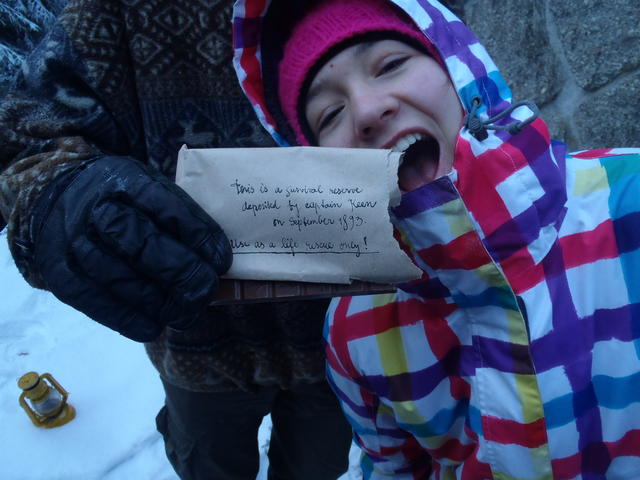 this is a survival reserve
deposited by captain Keen
on September 1893.
use as a life rescue only!